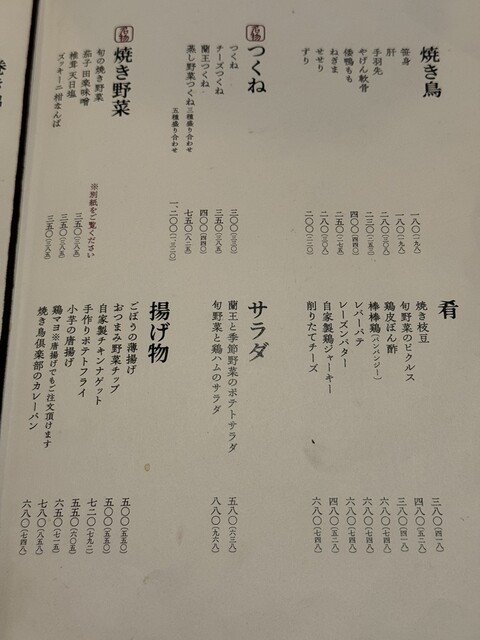 焼き鳥
笹身 一八〇(一九八)
肝 一八〇(一九八)
手羽先 二八〇(三〇八)
やげん軟骨 二三〇(二五三)
倭鴨もも 四〇〇(四四〇)
ねぎま 二五〇(二七五)
せせり 二〇〇(二二〇)
ずり 二〇〇(二二〇)
名物
つくね
つくね 三〇〇(三三〇)
チーズつくね 三五〇(三八五)
蘭王つくね 四〇〇(四四〇)
蒸し野菜つくね 三種盛り合わせ 七五〇(八二五)
五種盛り合わせ 一、二〇〇(一、三二〇)
名物
焼き野菜
旬の焼き野菜 ※別紙をご覧ください
茄子 田楽味噌 三五〇(三八五)
椎茸 天日塩 三五〇(三八五)
ズッキーニ 柑なんば 三五〇(三八五)
肴
焼き枝豆 三八〇(四一八)
旬野菜のピクルス 四八〇(五二八)
鶏皮ぽん酢 三八〇(四一八)
棒棒鶏(バンバンジー) 六八〇(七四八)
レバーパテ 六八〇(七四八)
レーズンバター 六八〇(七四八)
自家製鶏ジャーキー 四八〇(五二八)
削りたてチーズ 六八〇(七四八)
サラダ
蘭王と季節野菜のポテトサラダ 五八〇(六三八)
旬野菜と鶏ハムのサラダ 八八〇(九六八)
揚げ物
ごぼうの薄揚げ 五〇〇(五五〇)
おつまみ野菜チップ 五〇〇(五五〇)
自家製チキンナゲット 七二〇(七九二)
手作りポテトフライ 五五〇(六〇五)
小芋の唐揚げ 六五〇(七一五)
鶏マヨ※唐揚げでもご注文頂けます 七八〇(八五八)
焼き鳥倶楽部のカレーパン 六八〇(七四八)